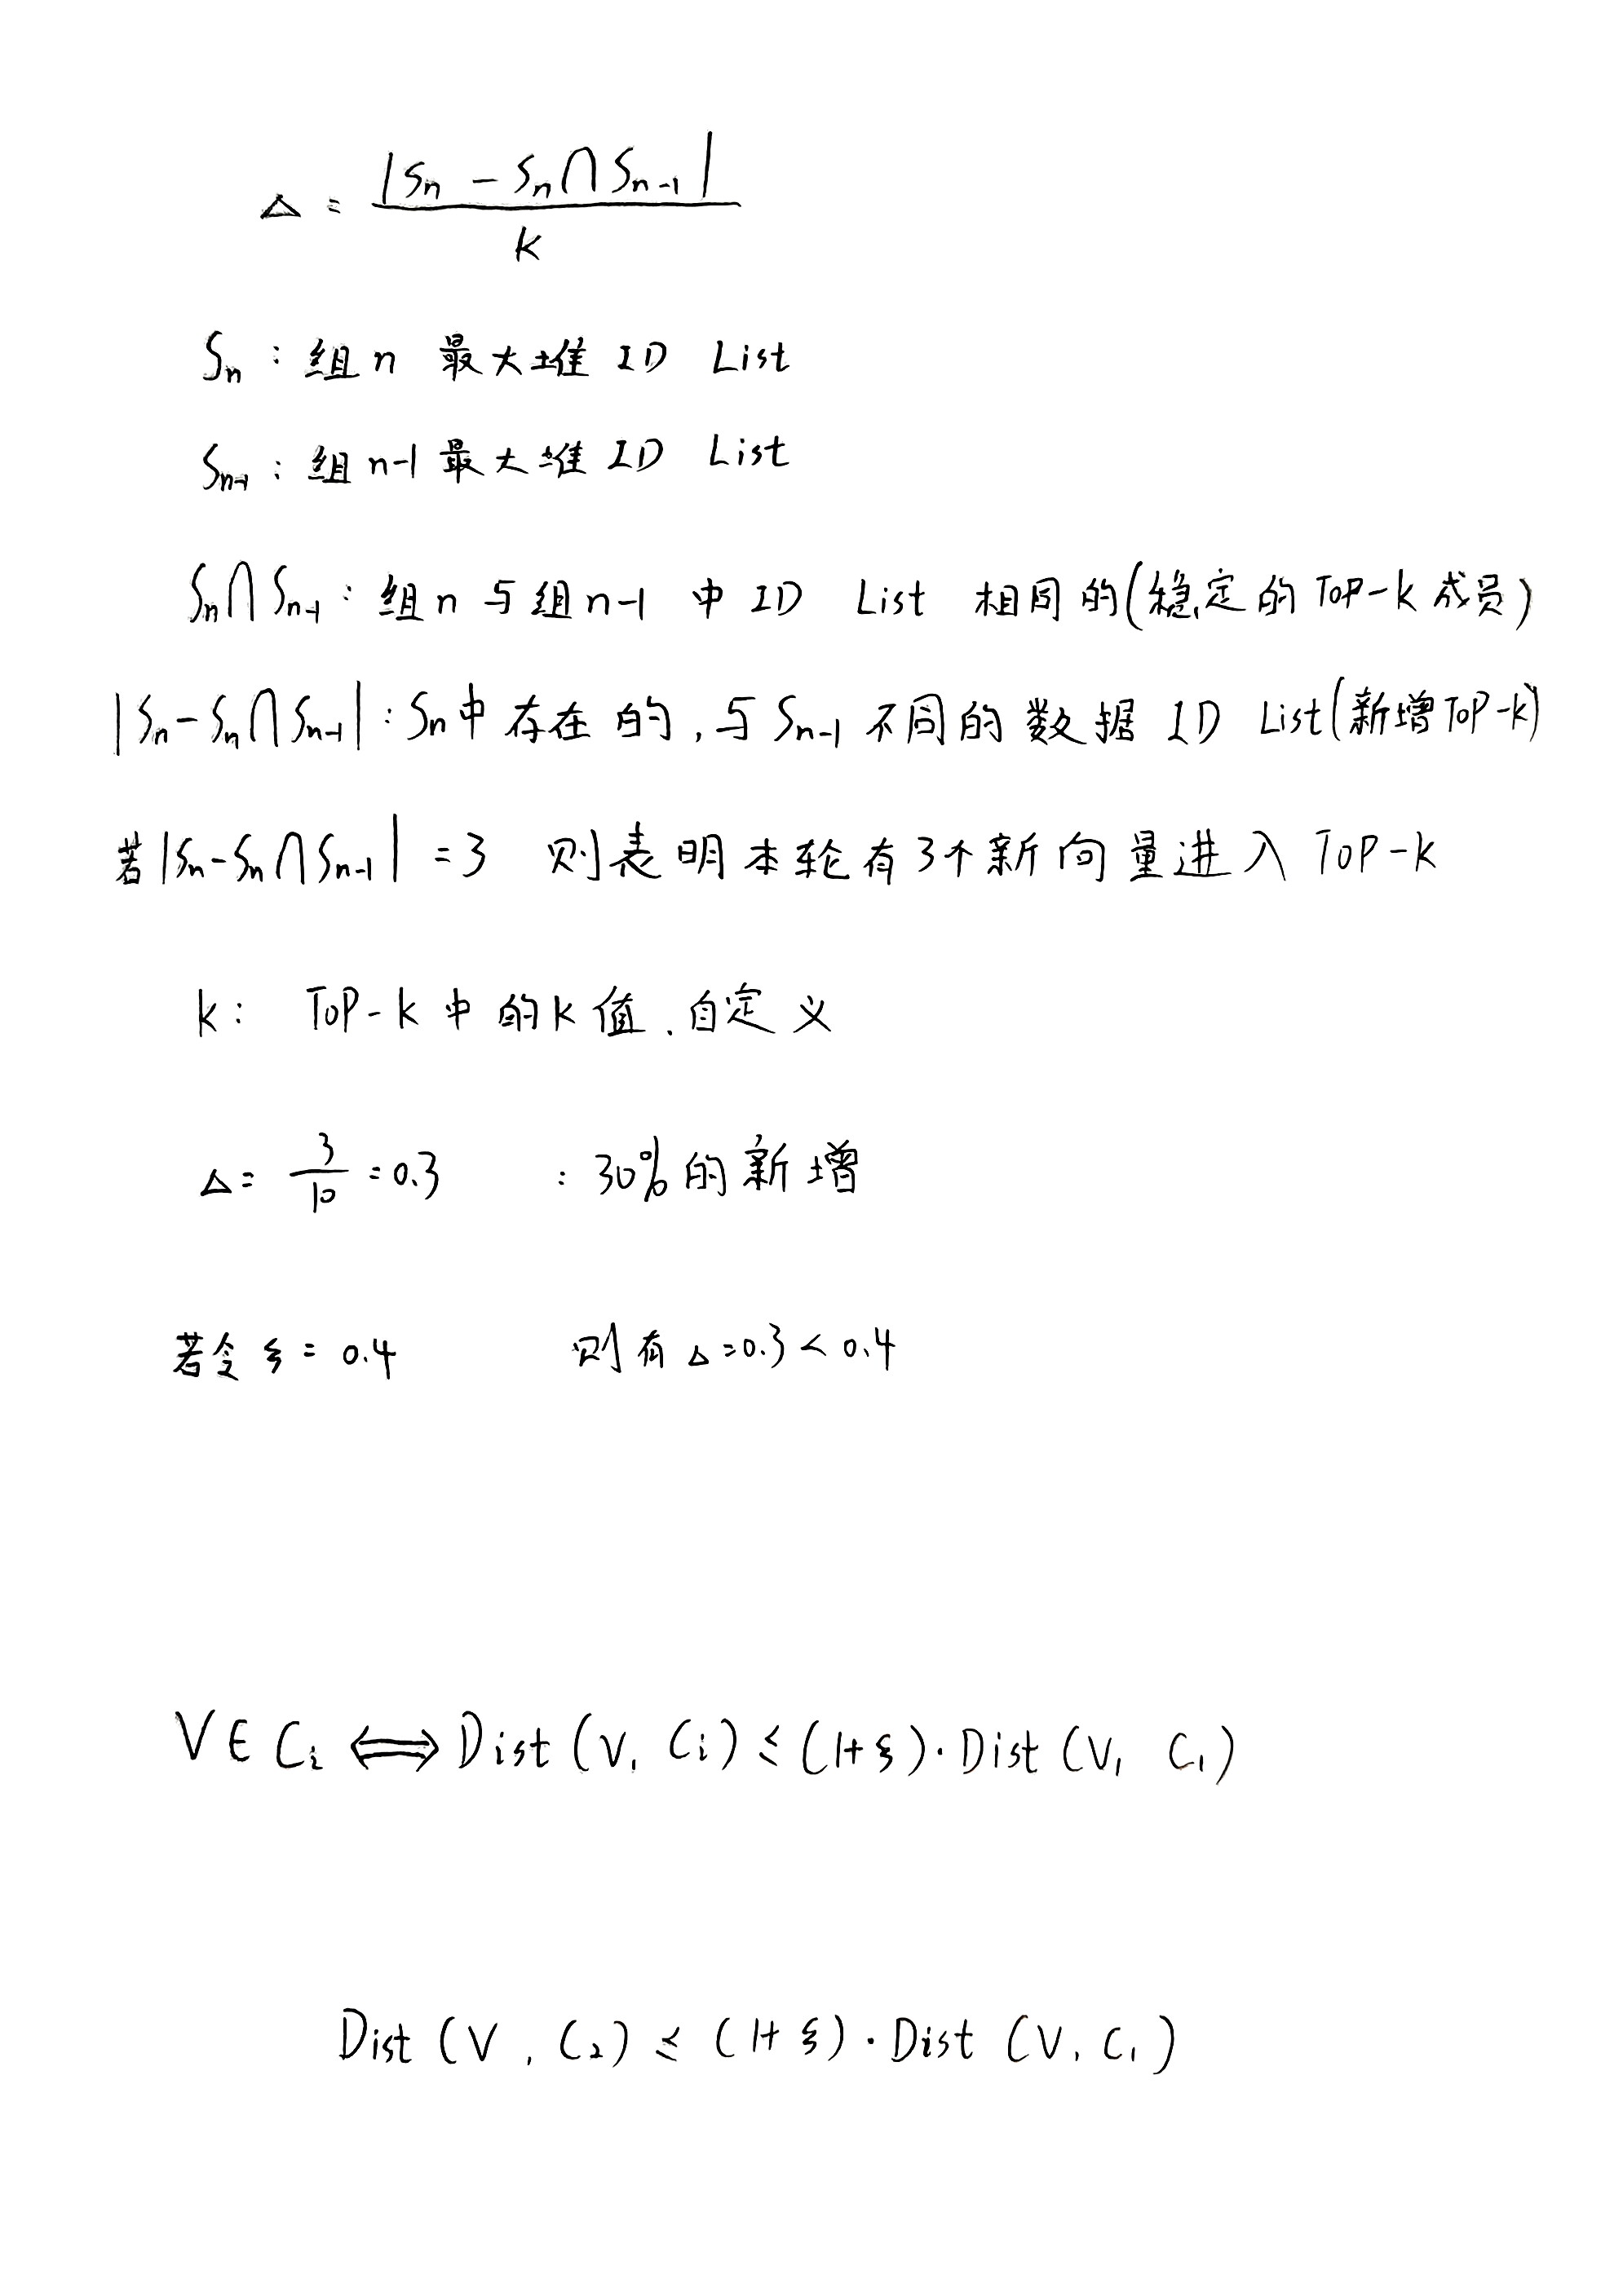 Δ = |Sn - Sn∩Sn-1| / k
Sn : 组n 最大堆 ID List
Sn-1 : 组n-1最大堆 ID List
Sn∩Sn-1 : 组n与组n-1 中 ID List 相同的(稳定的Top-k成员)
|Sn-Sn∩Sn-1| : Sn中存在的,与Sn-1不同的数据 ID List(新增Top-k)
若|Sn-Sn∩Sn-1| =3 则表明本轮有3个新向量进入 Top-k
k: Top-k中的k值.自定义
Δ= 3/10 =0.3 : 30%的新增
若令 ξ = 0.4 则有Δ=0.3<0.4
V∈Ci ⟺ Dist(V, Ci) ≤ (1+ξ)·Dist(V, C1)
Dist(V, C2) ≤ (1+ξ)·Dist(V, C1)